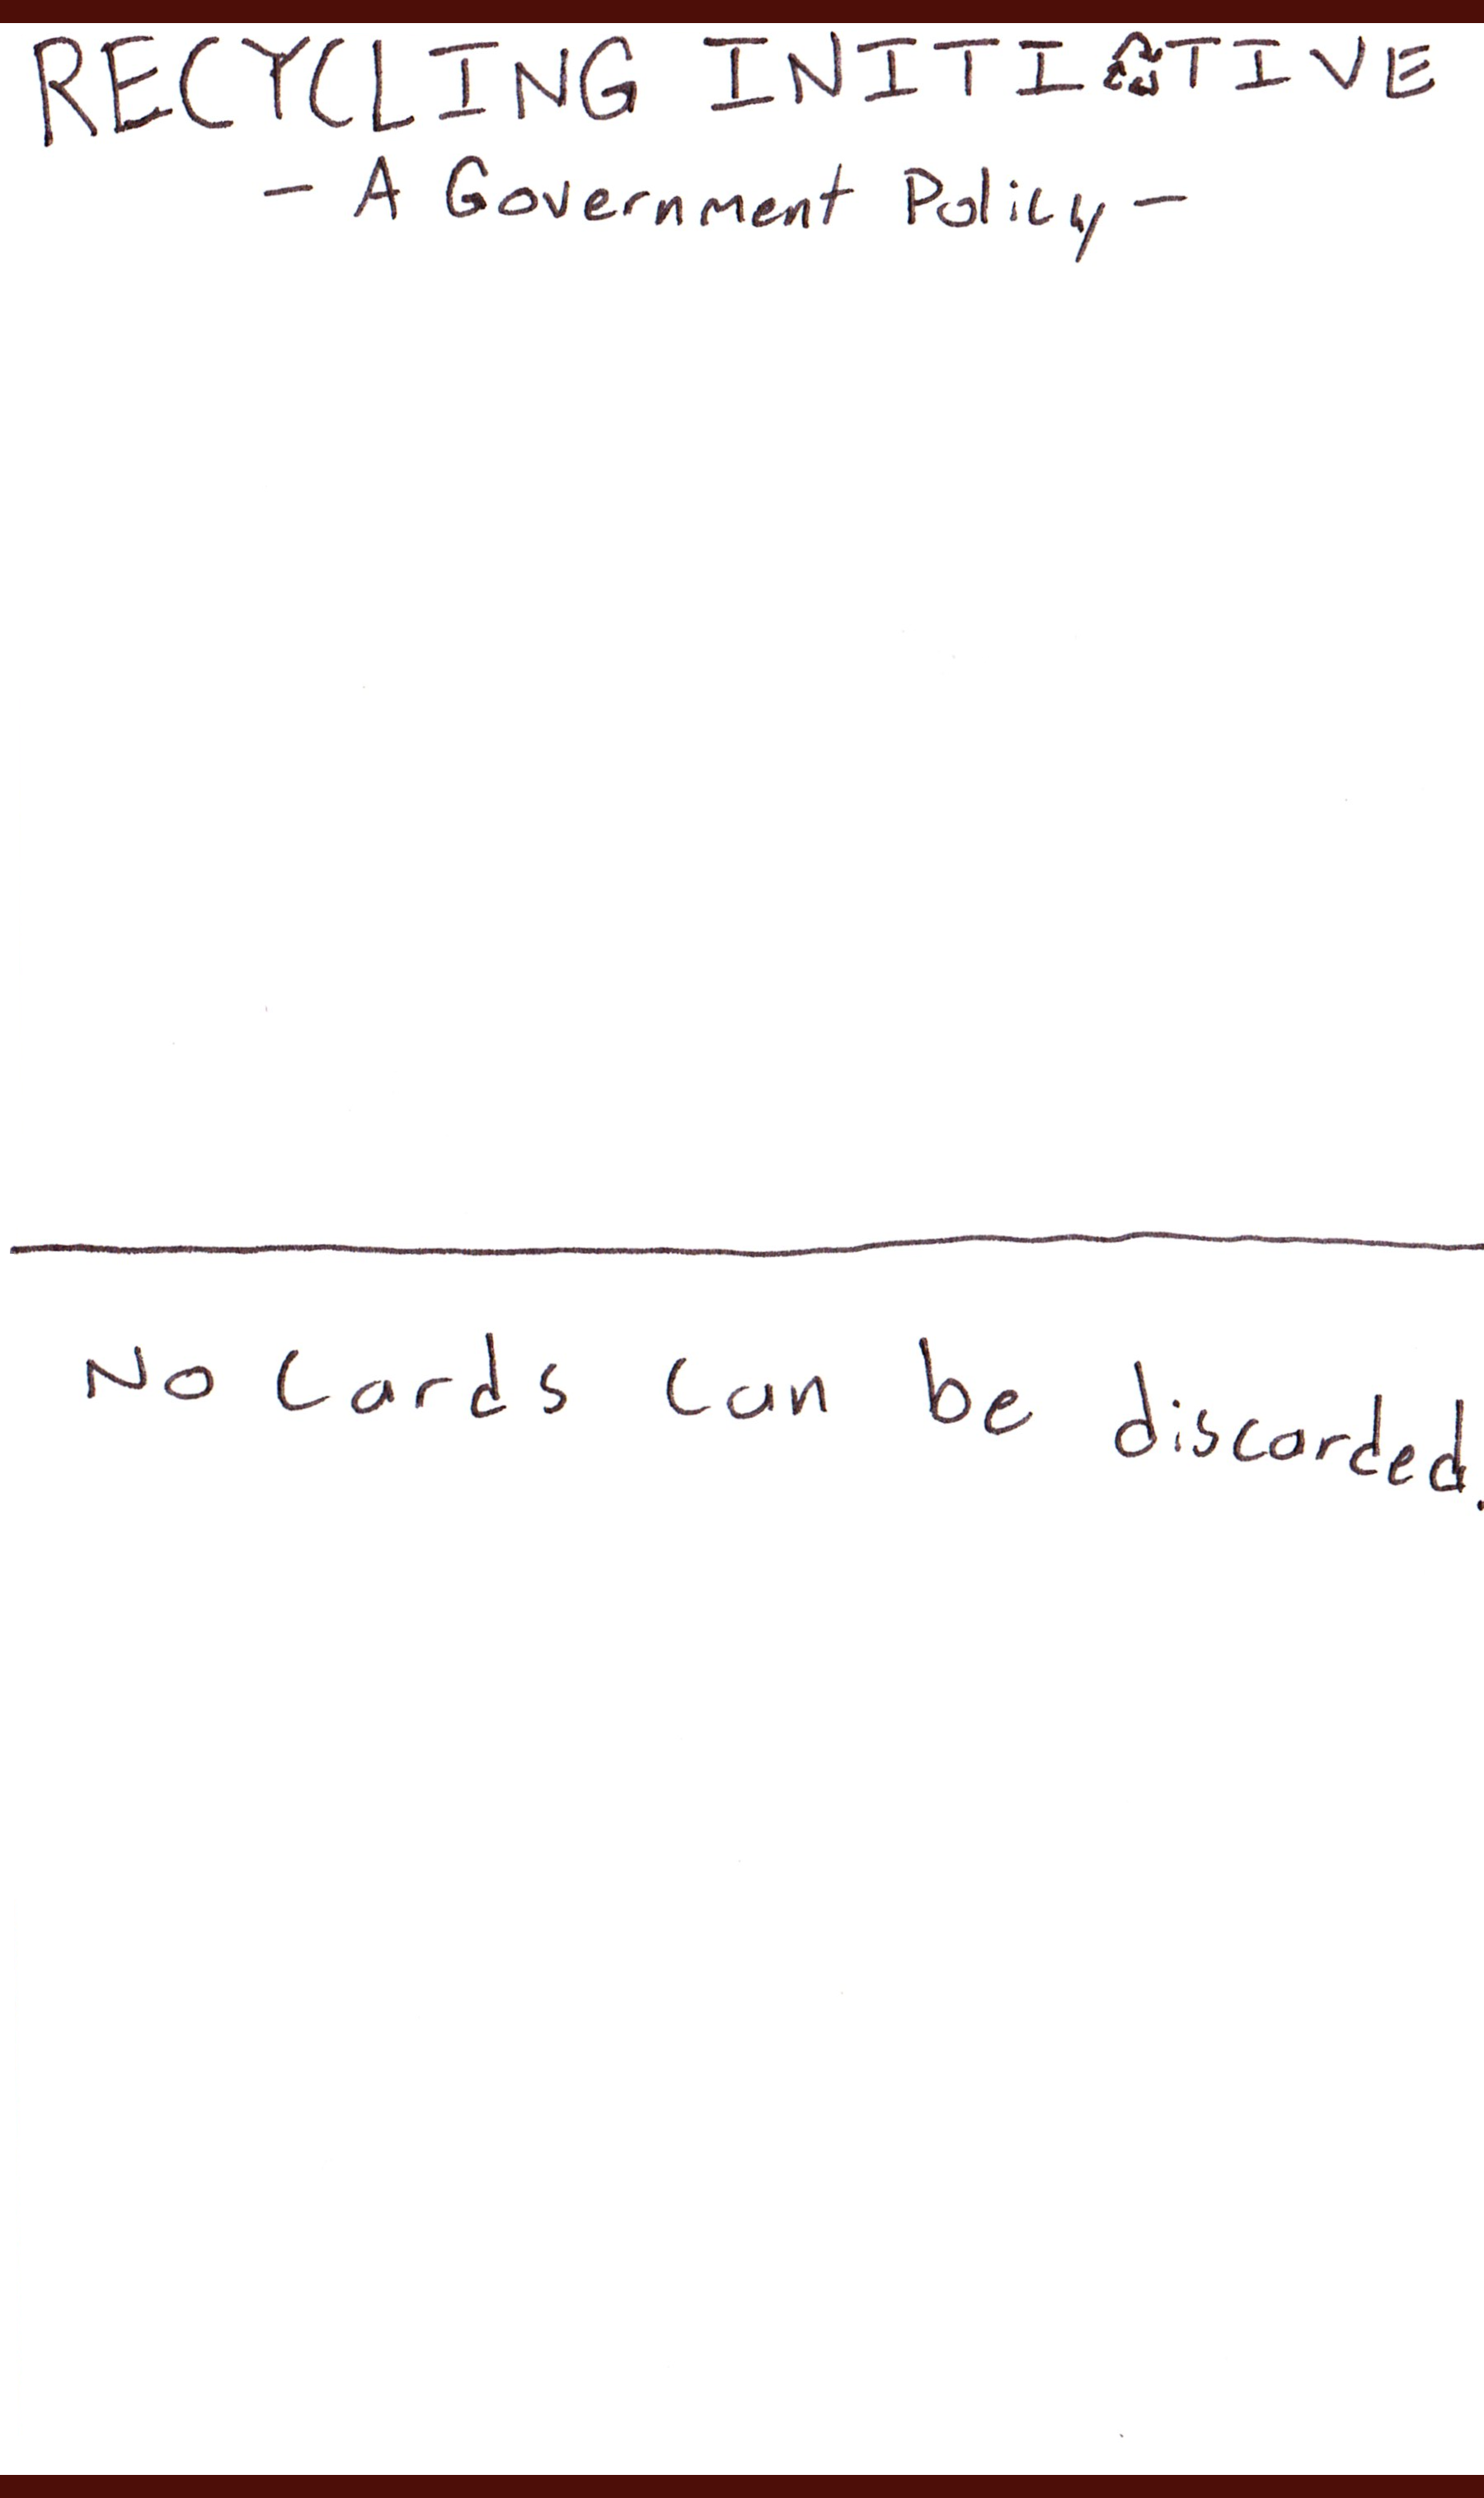 RECYCLING INITI♻TIVE
- A Government Policy -
No Cards Can be discarded.